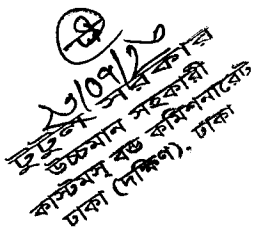 ২৩/০৭/২০
টুটুল সরকার
উচ্চমান সহকারী
কাস্টমস্ বন্ড কমিশনারেট
ঢাকা (দক্ষিণ), ঢাকা